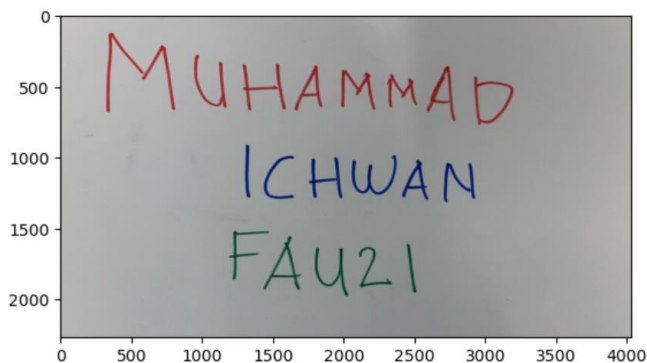 0
500
1000
1500
2000
MUHAMMAD
ICHWAN
FAUZI
0 500 1000 1500 2000 2500 3000 3500 4000